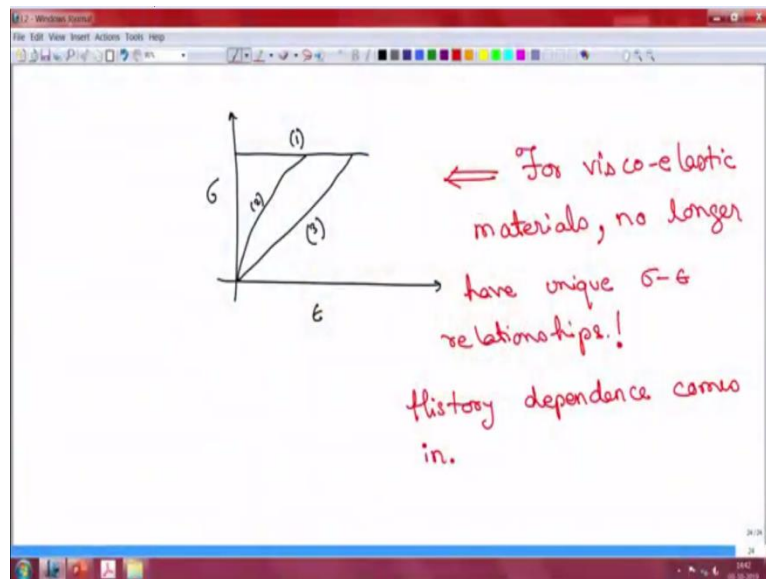 L2 - Windows Journal
File Edit View Insert Actions Tools Help
(1)
σ
(2)
(3)
ϵ
⇐ For visco-elastic
materials, no longer
have unique σ-ϵ
relationships.!
History dependence comes
in.
24/24
24